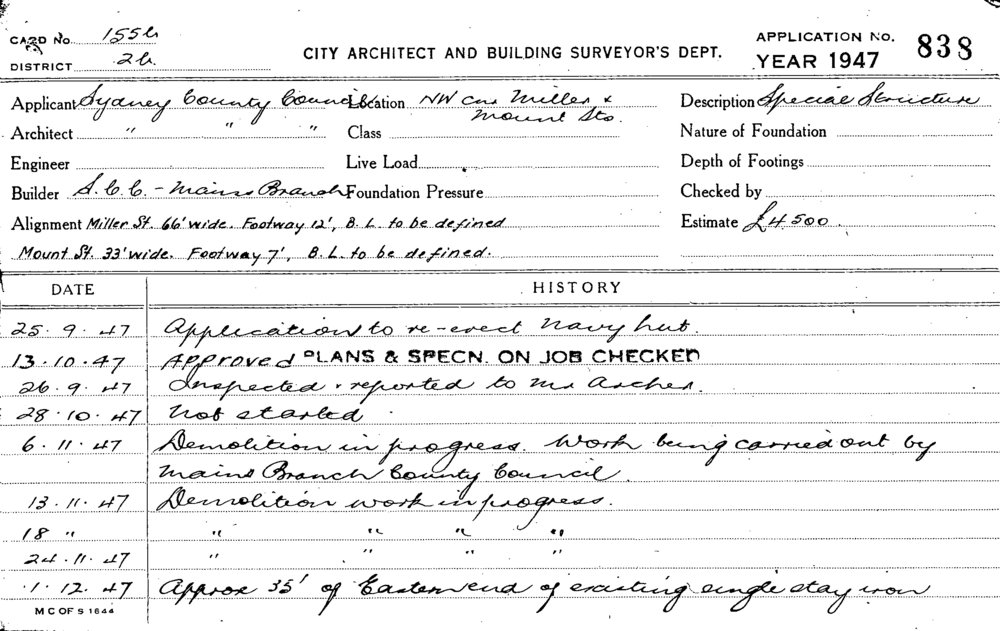 CARD No. 155b
DISTRICT 2b.
CITY ARCHITECT AND BUILDING SURVEYOR'S DEPT.
APPLICATION NO. 838
YEAR 1947
Applicant Sydney County Council Location NW cnr Miller & Mount Sts. Description Special Structure
Architect " " " Class Nature of Foundation
Engineer Live Load Depth of Footings
Builder S.C.C. - Mains Branch Foundation Pressure Checked by
Alignment Miller St. 66' wide. Footway 12', B.L. to be defined Estimate £4500.
Mount St. 33' wide. Footway 7', B.L. to be defined.
DATE HISTORY
25.9.47 Application to re-erect Navy hut.
13.10.47 Approved PLANS & SPECN. ON JOB CHECKED
26.9.47 Inspected & reported to Mr Archer.
28.10.47 Not started.
6.11.47 Demolition in progress. Work being carried out by
Mains Branch County Council.
13.11.47 Demolition work in progress.
18 " " " " "
24.11.47 " " " "
1.12.47 Approx 35' of Eastern end of existing single stay iron
M C OF S 1644